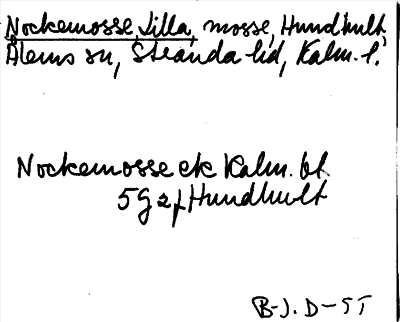 Nockemosse, Lilla, mosse, Hundhult,
Ålems sn, Stranda hd, Kalm. l.
Nockemosse ek Kalm. bl.
5G2f Hundhult
B-J. D-ST